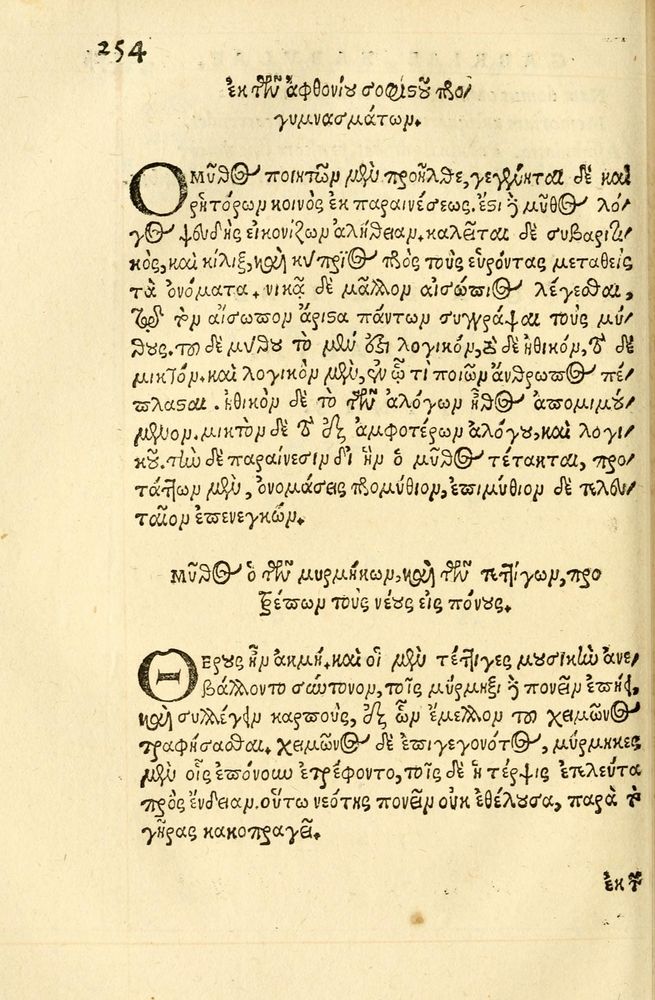 254
ἐκ τῶν ἀφθονίου σοφιστοῦ προ/
γυμνασμάτων.
Ὁ ΜΥ͂ΘΟΣ ποιητῶν μὲν προῆλθε, γεγένηται δὲ καὶ
ῥητόρων κοινὸς ἐκ παραινέσεως. ἔστι δὲ μῦθος λό/
γος ψευδὴς εἰκονίζων ἀλήθειαν. καλεῖται δὲ συβαριτι/
κὸς, καὶ κίλιξ, καὶ κύπριος πρὸς τοὺς εὑρόντας μεταθεὶς
τὰ ὀνόματα. νικᾷ δὲ μᾶλλον αἰσώπειος λέγεσθαι,
τῷ τὸν αἴσωπον ἄριστα πάντων συγγράψαι τοὺς μύ/
θους. τοῦ δὲ μύθου τὸ μέν ἐστι λογικόν, τὸ δὲ ἠθικόν, τὸ δὲ
μικτόν. καὶ λογικὸν μὲν, ἐν ᾧ τι ποιῶν ἄνθρωπος πέ/
πλασται. ἠθικὸν δὲ τὸ τῶν ἀλόγων ἦθος ἀπομιμού/
μενον. μικτὸν δὲ τὸ ἐξ ἀμφοτέρων ἀλόγου, καὶ λογι/
κοῦ. τὴν δὲ παραίνεσιν δι' ἣν ὁ μῦθος τέτακται, προ/
τάττων μὲν, ὀνομάσεις προμύθιον, ἐπιμύθιον δὲ τελευ/
ταῖον ἐπενεγκών.
ΜΥ͂ΘΟΣ ὁ τῶν μυρμήκων, καὶ τῶν τεττίγων, προ
τρέπων τοὺς νέους εἰς πόνους.
ΘΕΡΟΥΣ ἦν ἀκμή. καὶ οἱ μὲν τέττιγες μουσικὴν ἀνε/
βάλλοντο σύντονον, τοῖς μύρμηξι δὲ πονεῖν ἐπῄει,
καὶ συλλέγειν καρποὺς, ἐξ ὧν ἔμελλον τοῦ χειμῶνος
τραφήσασθαι. χειμῶνος δὲ ἐπιγεγονότος, μύρμηκες
μὲν οἷς ἐπόνουν ἐτρέφοντο, τοῖς δὲ ἡ τέρψις ἐτελεύτα
πρὸς ἔνδειαν. οὕτω νεότης πονεῖν οὐκ ἐθέλουσα, παρὰ τὸ
γῆρας κακοπραγεῖ.
ἐκ τῶ